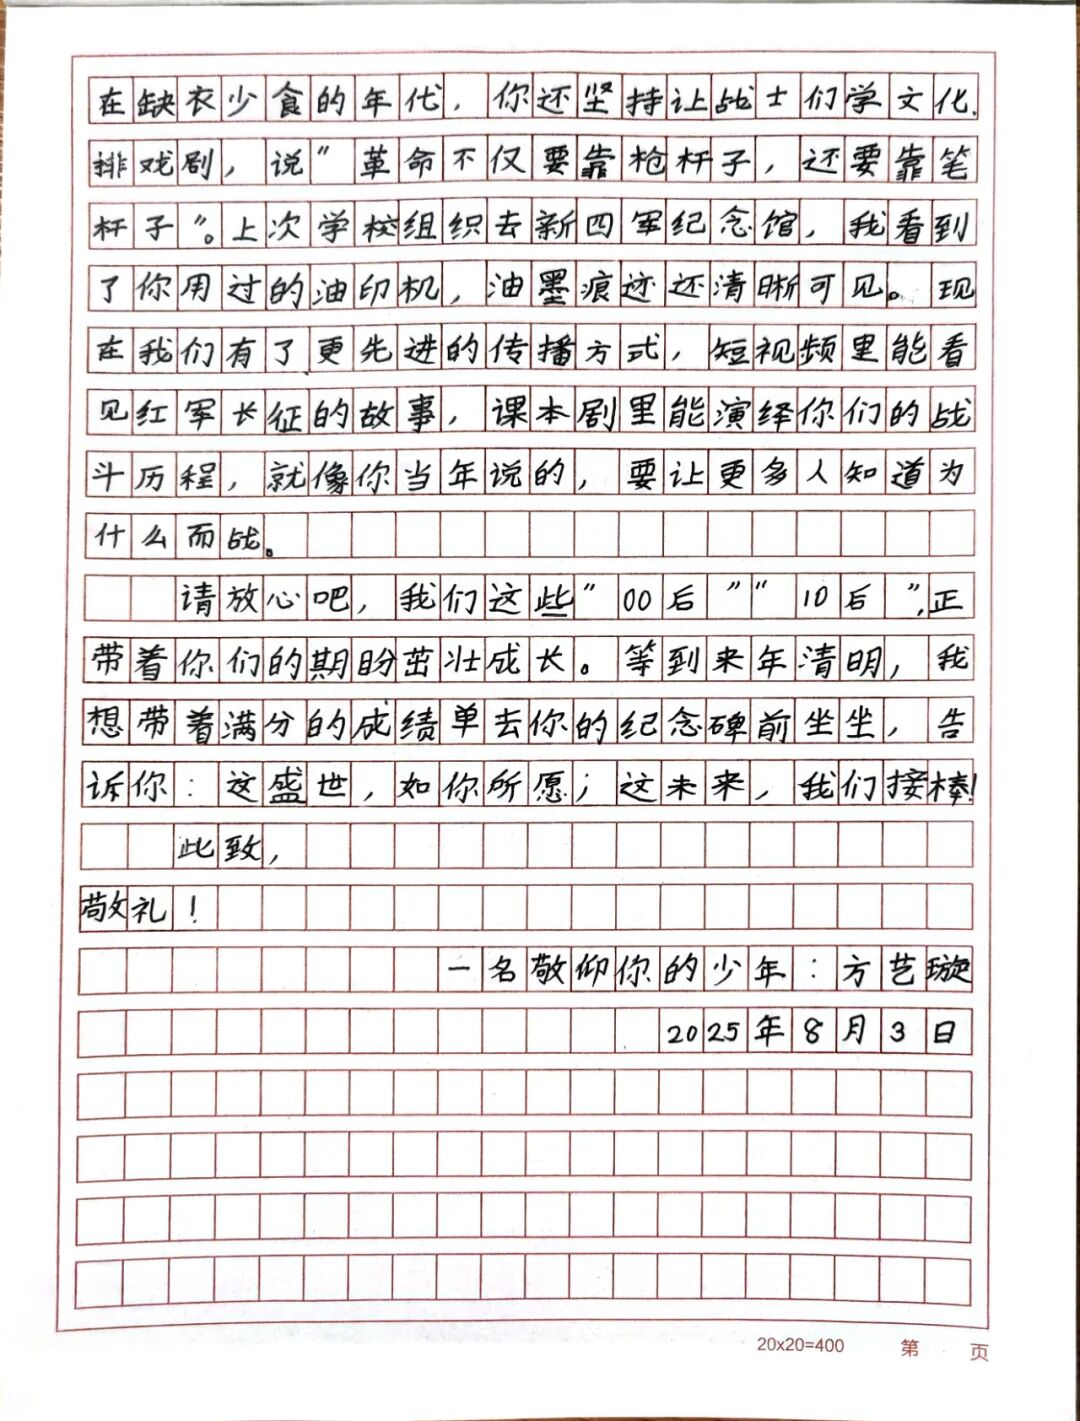 在缺衣少食的年代，你还坚持让战士们学文化、
排戏剧，说"革命不仅要靠枪杆子，还要靠笔
杆子"。上次学校组织去新四军纪念馆，我看到
了你用过的油印机，油墨痕迹还清晰可见。现
在我们有了更先进的传播方式，短视频里能看
见红军长征的故事，课本剧里能演绎你们的战
斗历程，就像你当年说的，要让更多人知道为
什么而战。
请放心吧，我们这些"00后""10后"，正
带着你们的期盼茁壮成长。等到来年清明，我
想带着满分的成绩单去你的纪念碑前坐坐，告
诉你：这盛世，如你所愿；这未来，我们接棒！
此致，
敬礼！
一名敬仰你的少年：方艺璇
2025年8月3日
20x20=400 第 页